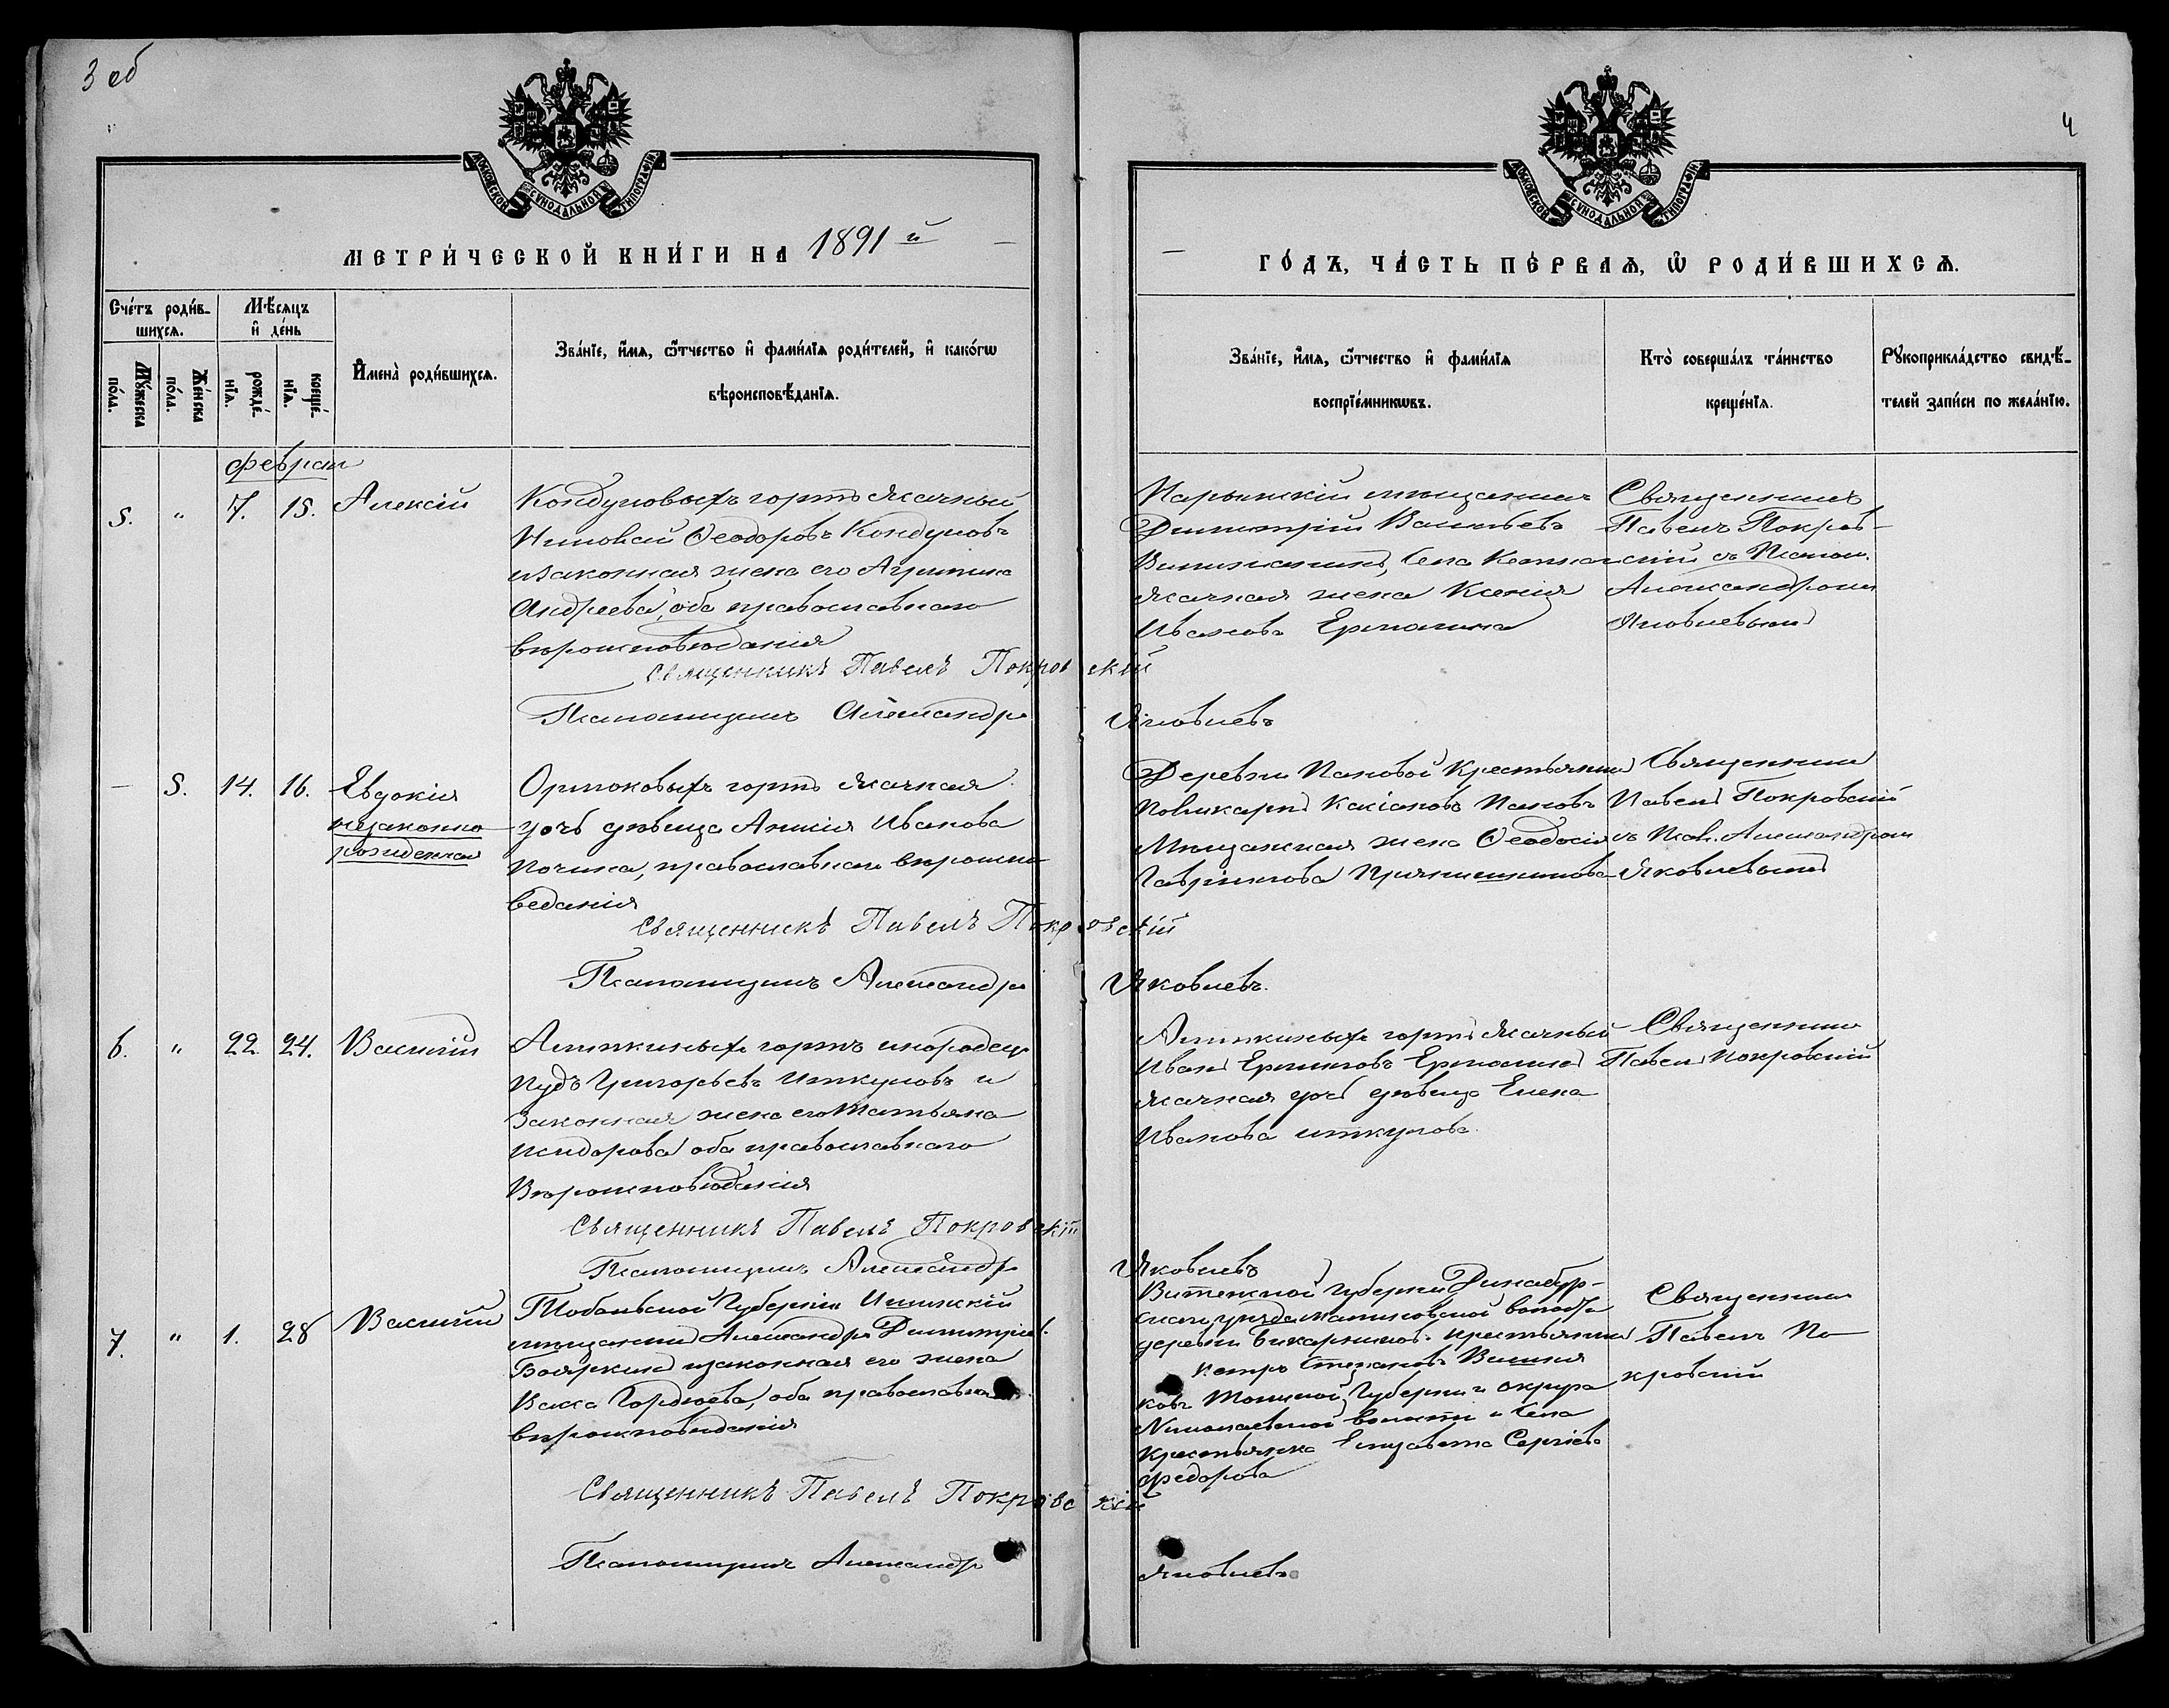 3 об
4
МОСКОВСКОЙ СѴНОДАЛЬНОЙ ТИПОГРАФІИ
МОСКОВСКОЙ СѴНОДАЛЬНОЙ ТИПОГРАФІИ
МЕТРИ́ЧЕСКОЙ КНИ́ГИ НА 1891 й
ГО́ДЪ, ЧА́СТЬ ПЕ́РВАѦ, Ѡ҆ РОДИ́ВШИХСѦ.
Сче́тъ роди́в-
шихсѧ.
Мѣ́сѧцъ
и҆ де́нь
Мꙋ́жеска
по́ла.
Же́нска
по́ла.
рожде́-
нїѧ.
креще́-
нїѧ.
И҆мена̀ роди́вшихсѧ.
Зва́нїе, и҆́мѧ, ѻ҆́тчество и҆ фами́лїѧ роди́телей, и҆ како́гѡ
вѣроисповѣ́данїѧ.
Зва́нїе, и҆́мѧ, ѻ҆́тчество и҆ фами́лїѧ
воспрїе́мникѡвъ.
Кто̀ соверша́лъ та́инство
креще́нїѧ.
Рꙋкоприкла́дство свидѣ́-
телей за́писи по жела́нїю.
Феврал
5. " 7. 15. Алексій
Кондуковыхъ юртъ Ясачный
Ѳеодоровъ Кондуковъ
и законная жена его
Андреева, оба православнаго
вѣроисповѣданія
мѣщанинъ
Димитрій Васильевъ
села
Ясачная жена Ксенія
Иванова Ермолина
Священникъ
Павелъ Покров-
скій съ Псалом.
Александромъ
Яковлевымъ
Священникъ Павелъ Покровскій
Псаломщикъ Александръ Яковлевъ
— 5. 14. 16. Евдокія
незаконно
рожденная
юртъ Ясачная
дочь дѣвица Анисія Иванова
православнаго вѣроиспо
веданія
Деревни Пановой Крестьянинъ
Поликарпъ Касіановъ Пановъ
Мѣщанская жена Ѳеодосія
Гаврилова
Священникъ
Павелъ Покровскій
съ Псал. Александромъ
Яковлевымъ
Священникъ Павелъ Покровскій
Псаломщикъ Александръ Яковлевъ.
6. " 22 24. Василій
юртъ инородецъ
Григорьевъ Иткуповъ и
Законная жена его Татьяна
Исидорова оба православнаго
Вѣроисповѣданія
юртъ Ясачный
Иванъ Ермиловъ Ермолинъ
Ясачная дочь дѣвица Елена
Иванова Иткупова.
Священникъ
Павелъ Покровскій
Священникъ Павелъ Покровскій
Псаломщикъ Александръ Яковлевъ
7. " 1. 28 Василій
Тобольской Губерніи Ишимскій
мѣщанинъ Александръ Димитріев.
Бояркинъ и законная его жена
Васса Гордѣева, оба православна
вѣроисповѣданія
Витебской Губерніи Динабур-
скаго уѣзда волости
деревни крестьянинъ
Петръ Степановъ
ковъ Томской Губерніи и округа
Николаевской волости и села
Крестьянка Елизавета Сергіева
Федорова
Священникъ
Павелъ По
кровскій
Священникъ Павелъ Покровскій
Псаломщикъ Александр Яковлевъ